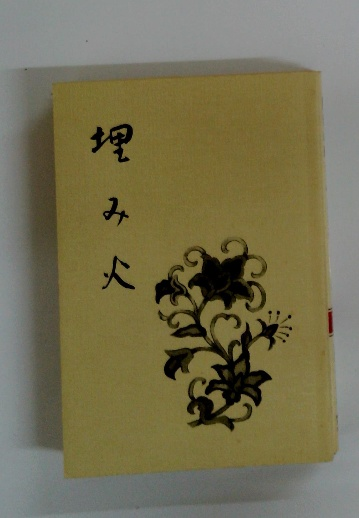 埋み火